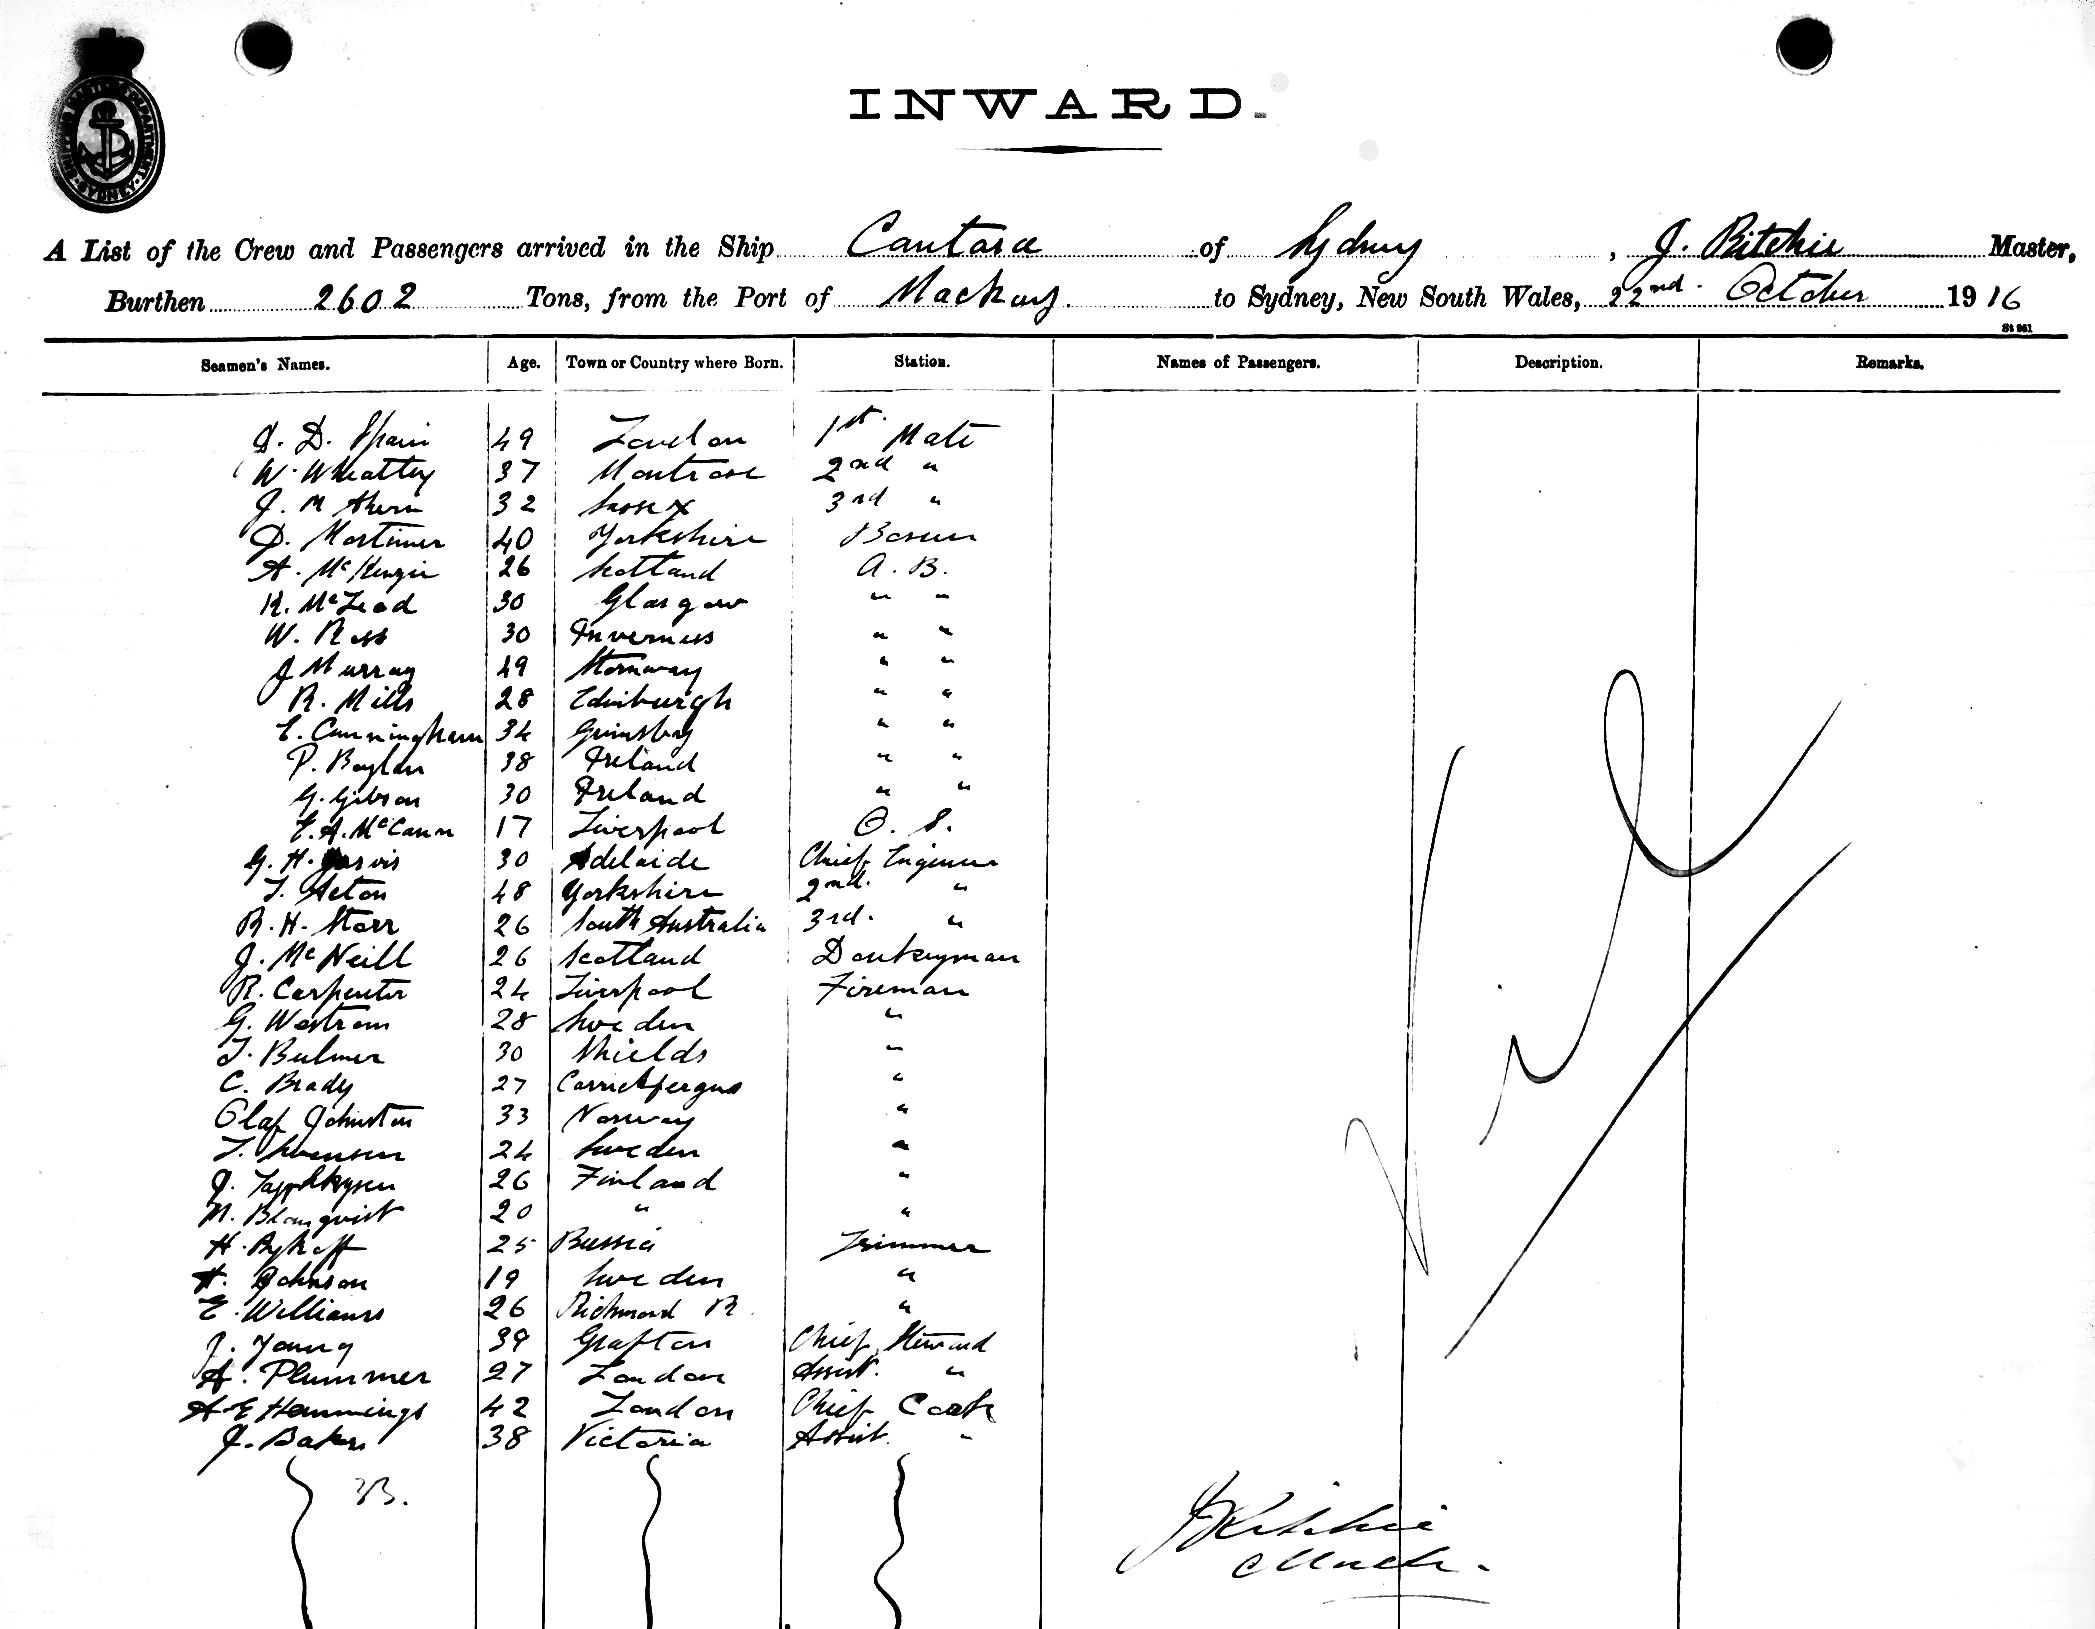 SHIPPING MASTER'S DEPARTMENT · SYDNEY ·
INWARD.
A List of the Crew and Passengers arrived in the Ship Cantara of Sydney, J. Ritchie Master,
Burthen 2602 Tons, from the Port of Mackay. to Sydney, New South Wales, 22nd. October 1916
St 961
Seamen's Names. Age. Town or Country where Born. Station. Names of Passengers. Description. Remarks.
J. D. Spain 49 London 1st. Mate
W. Wheatley 37 Montrose 2nd "
J. M Ahern 32 Sussex 3rd "
D. Mortimer 40 Yorkshire Bosun
A. McKenzie 26 Scotland A. B.
K. McLeod 30 Glasgow " "
W. Ross 30 Inverness " "
J Murray 49 Stornway " "
R. Mills 28 Edinburgh " "
E. Cunningham 34 Grimsby " "
P. Boylan 38 Ireland " "
G. Gibson 30 Ireland " "
E. A. McCann 17 Liverpool O. S.
G. H. Jarvis 30 Adelaide Chief Engineer
T. Acton 48 Yorkshire 2nd. "
R. H. Starr 26 South Australia 3rd. "
J. McNeill 26 Scotland Donkeyman
R. Carpenter 24 Liverpool Fireman
G. Westrom 28 Sweden "
T. Bulmer 30 Shields "
C. Brady 27 Carrickfergus "
Olaf Johnston 33 Norway "
T. Swensen 24 Sweden "
J. 26 Finland "
M. Blomqvist 20 " "
H. 25 Russia Trimmer
A. Johnson 19 Sweden "
E. Williams 26 Richmond R. "
J. Young 39 Grafton Chief Steward
A. Plummer 27 London Assist. "
A E Hemmings 42 London Chief Cook
J. Baker 38 Victoria Assist. "
33.
Nil
J Ritchie
Master.